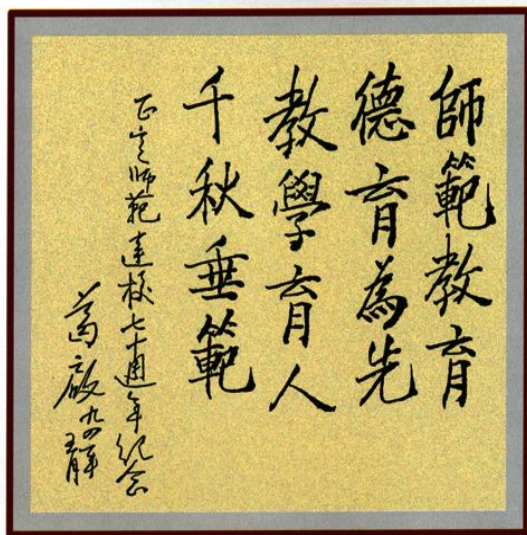 師範教育
德育為先
教學育人
千秋垂範
正定师范建校七十週年纪念
葛啟九四年五月